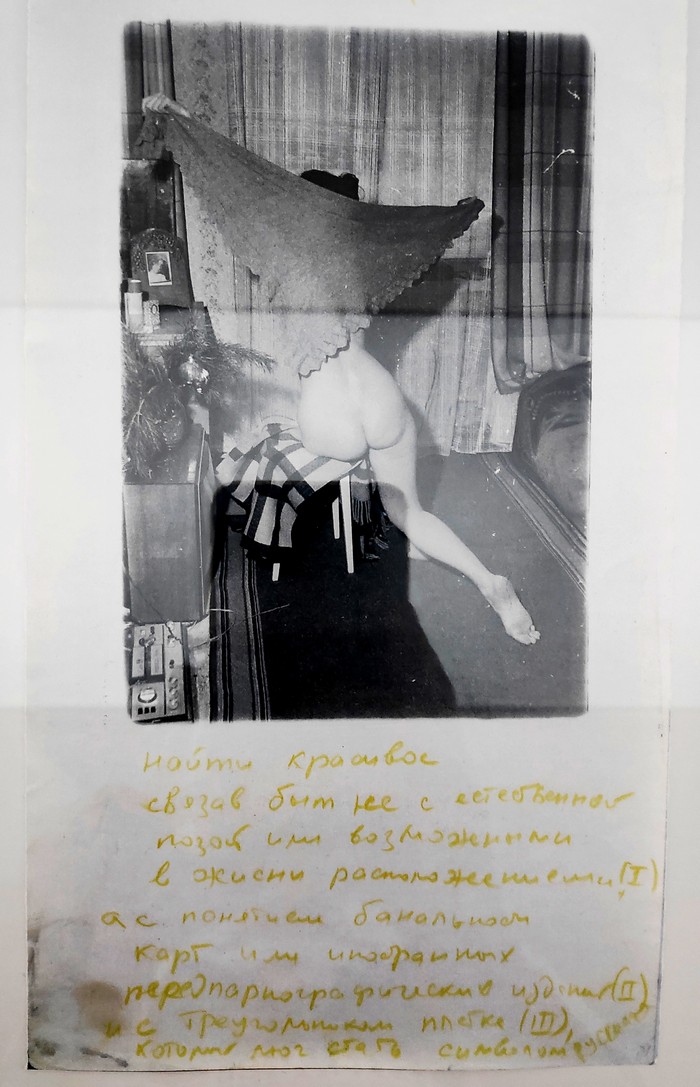 найти красивое
связав быт не с естественной
позой или возможными
в жизни расположениями (I)
а с понятием банальном
карт или иностранных
передпарнографических издания (II)
и с треугольником платка (III),
который мог стать символом